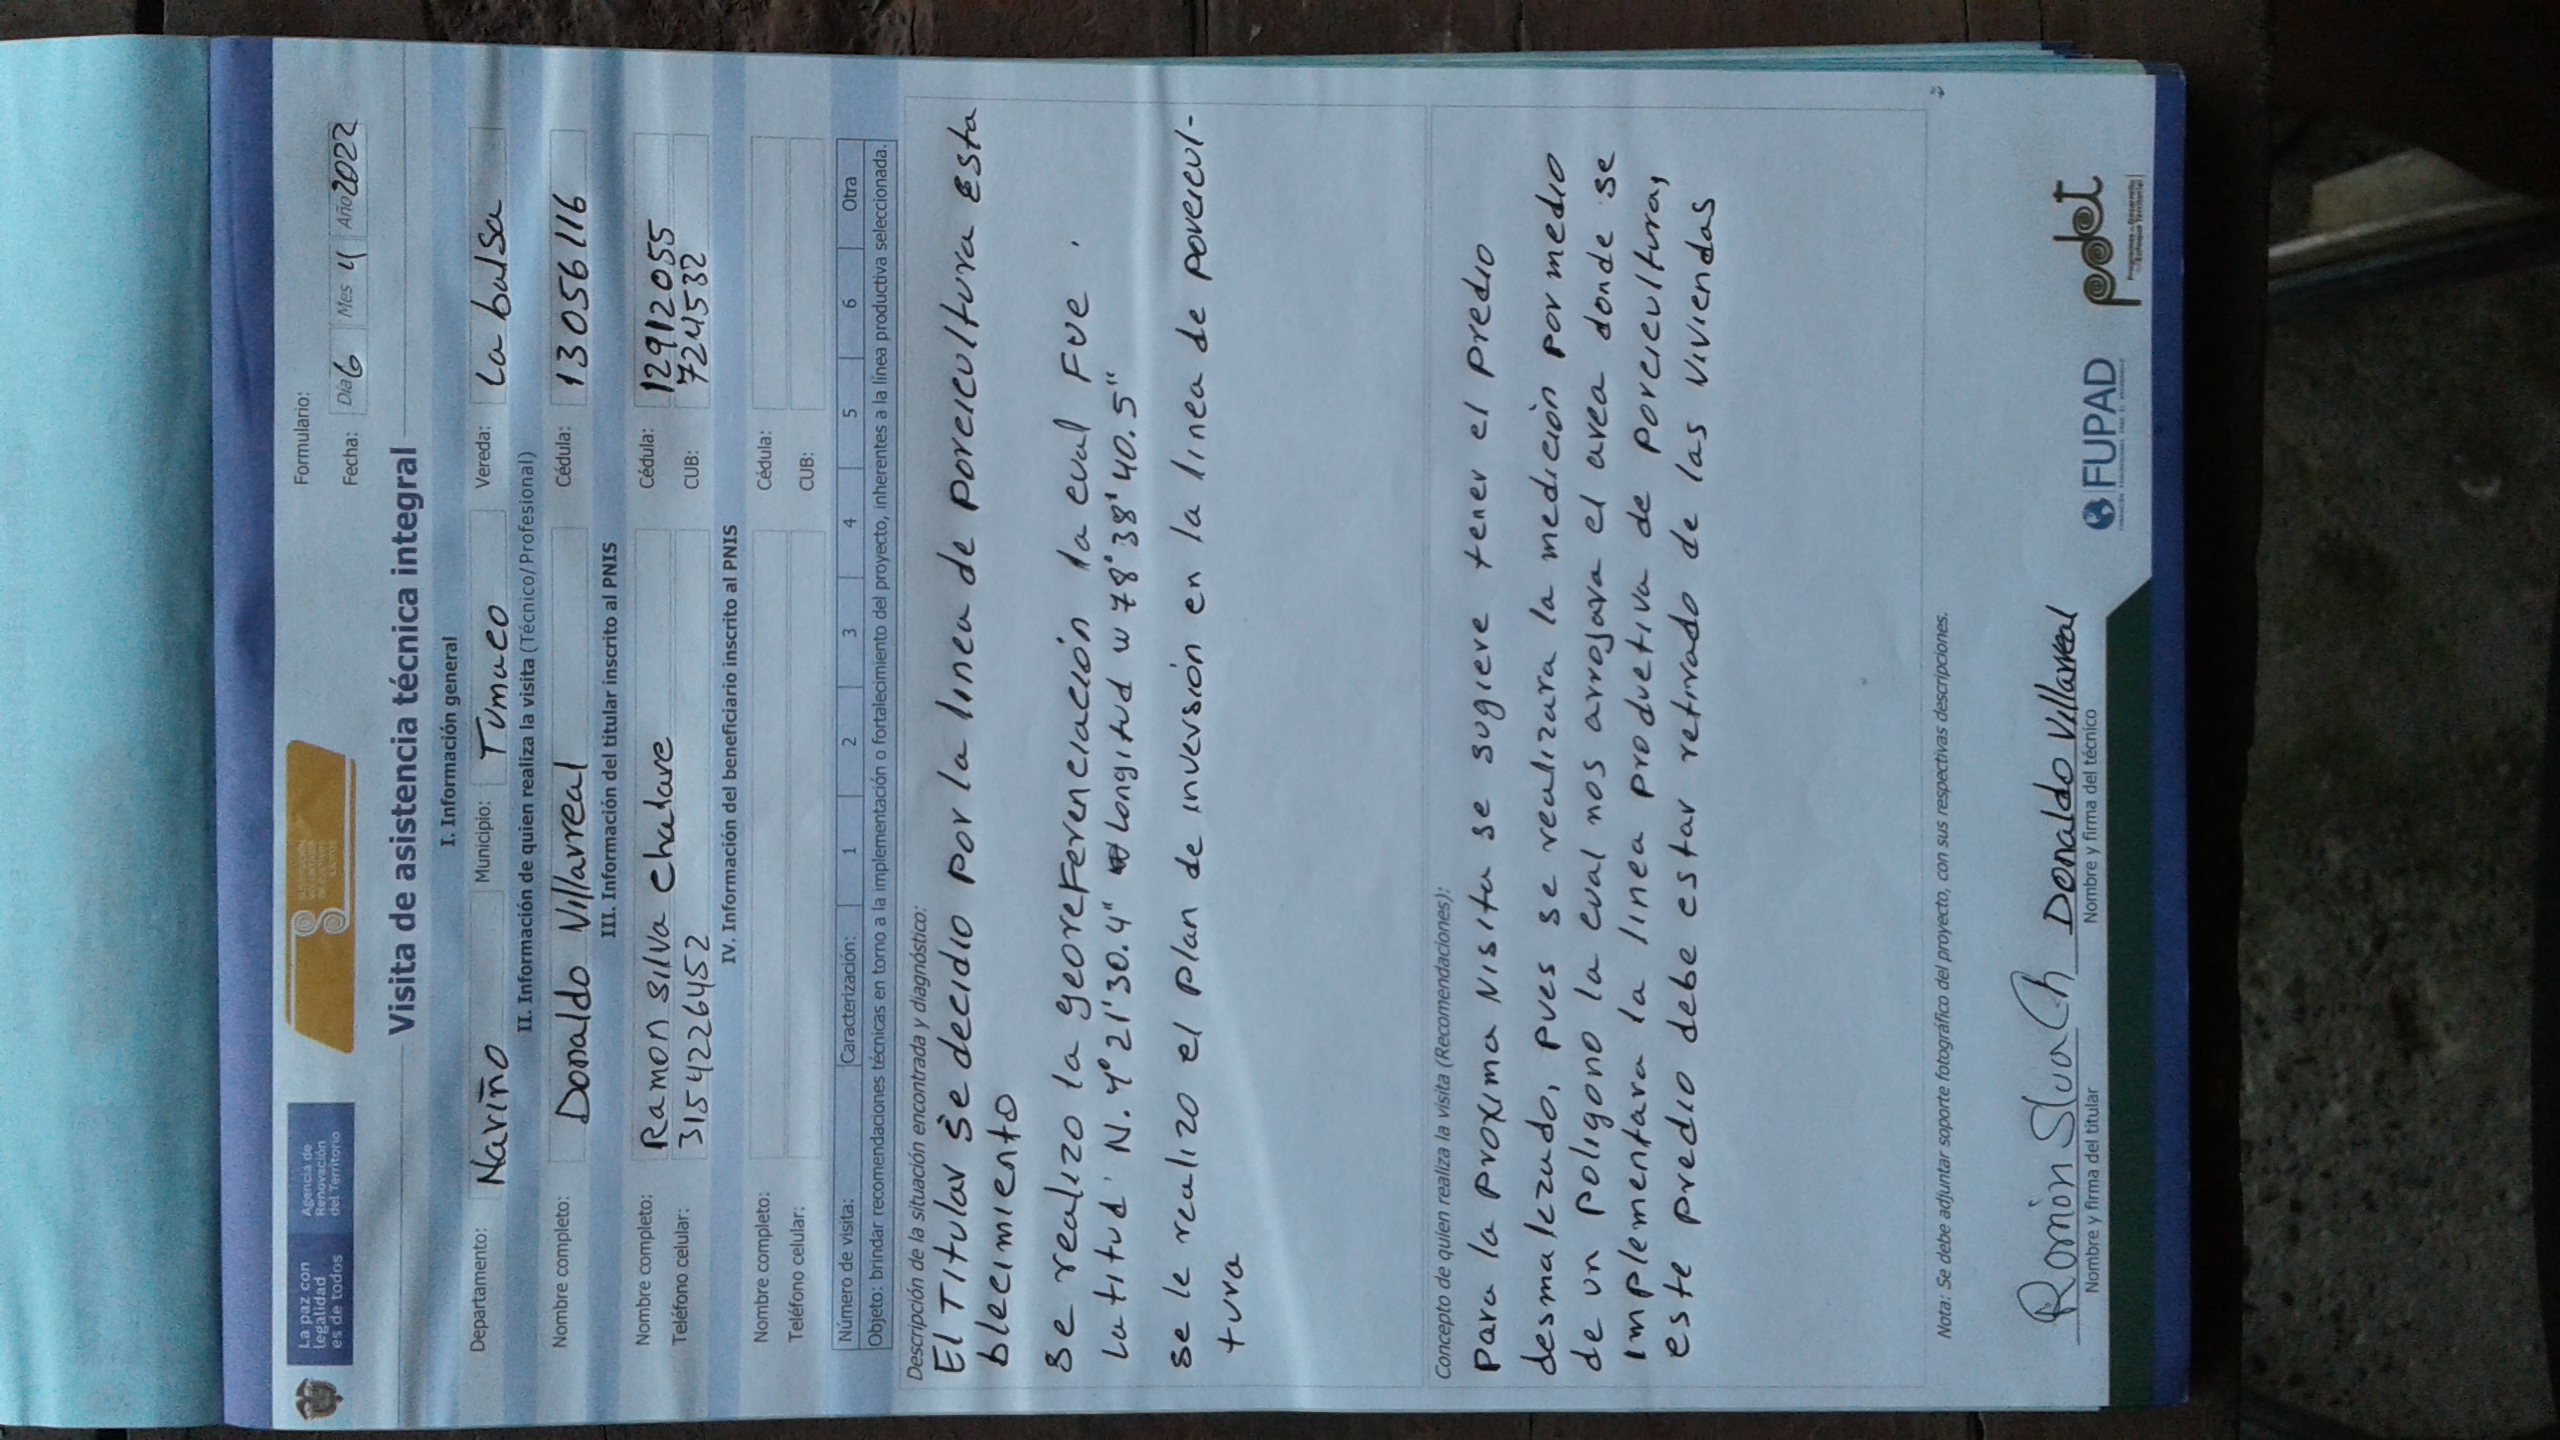 La paz con legalidad es de todos
Agencia de Renovación del Territorio
Formulario:
Fecha: Día 6 Mes 4 Año 2022
Visita de asistencia técnica integral
I. Información general
Departamento: Nariño Municipio: Tumaco Vereda: La balsa
II. Información de quien realiza la visita (Técnico/Profesional)
Nombre completo: Donaldo Villarreal Cédula: 13056116
III. Información del titular inscrito al PNIS
Nombre completo: Ramon Silva Chalare Cédula: 12912055
Teléfono celular: 3154226452 CUB: 724532
IV. Información del beneficiario inscrito al PNIS
Nombre completo: Cédula:
Teléfono celular: CUB:
Número de visita: Caracterización: 1 2 3 4 5 6 Otra
Objeto: brindar recomendaciones técnicas en torno a la implementación o fortalecimiento del proyecto, inherentes a la línea productiva seleccionada.
Descripción de la situación encontrada y diagnóstico:
El Titular se decidio por la linea de porcicultura Esta
blecimiento
Se realizo la georeferenciación la cual Fue.
Latitud' N. 4° 21' 30.4" Longitud w 78° 38' 40.5"
se le realizo el plan de inversión en la linea de porcicul-
tura
Concepto de quien realiza la visita (Recomendaciones):
Para la proxima visita se sugiere tener el predio
desmalezado, pues se realizara la medición por medio
de un poligono la cual nos arrojara el area donde se
implementara la linea productiva de porcicultura,
este predio debe estar retirado de las viviendas
Nota: Se debe adjuntar soporte fotográfico del proyecto, con sus respectivas descripciones.
Ramón Silva Ch Donaldo Villarreal
Nombre y firma del titular Nombre y firma del técnico
FUPAD
pdet